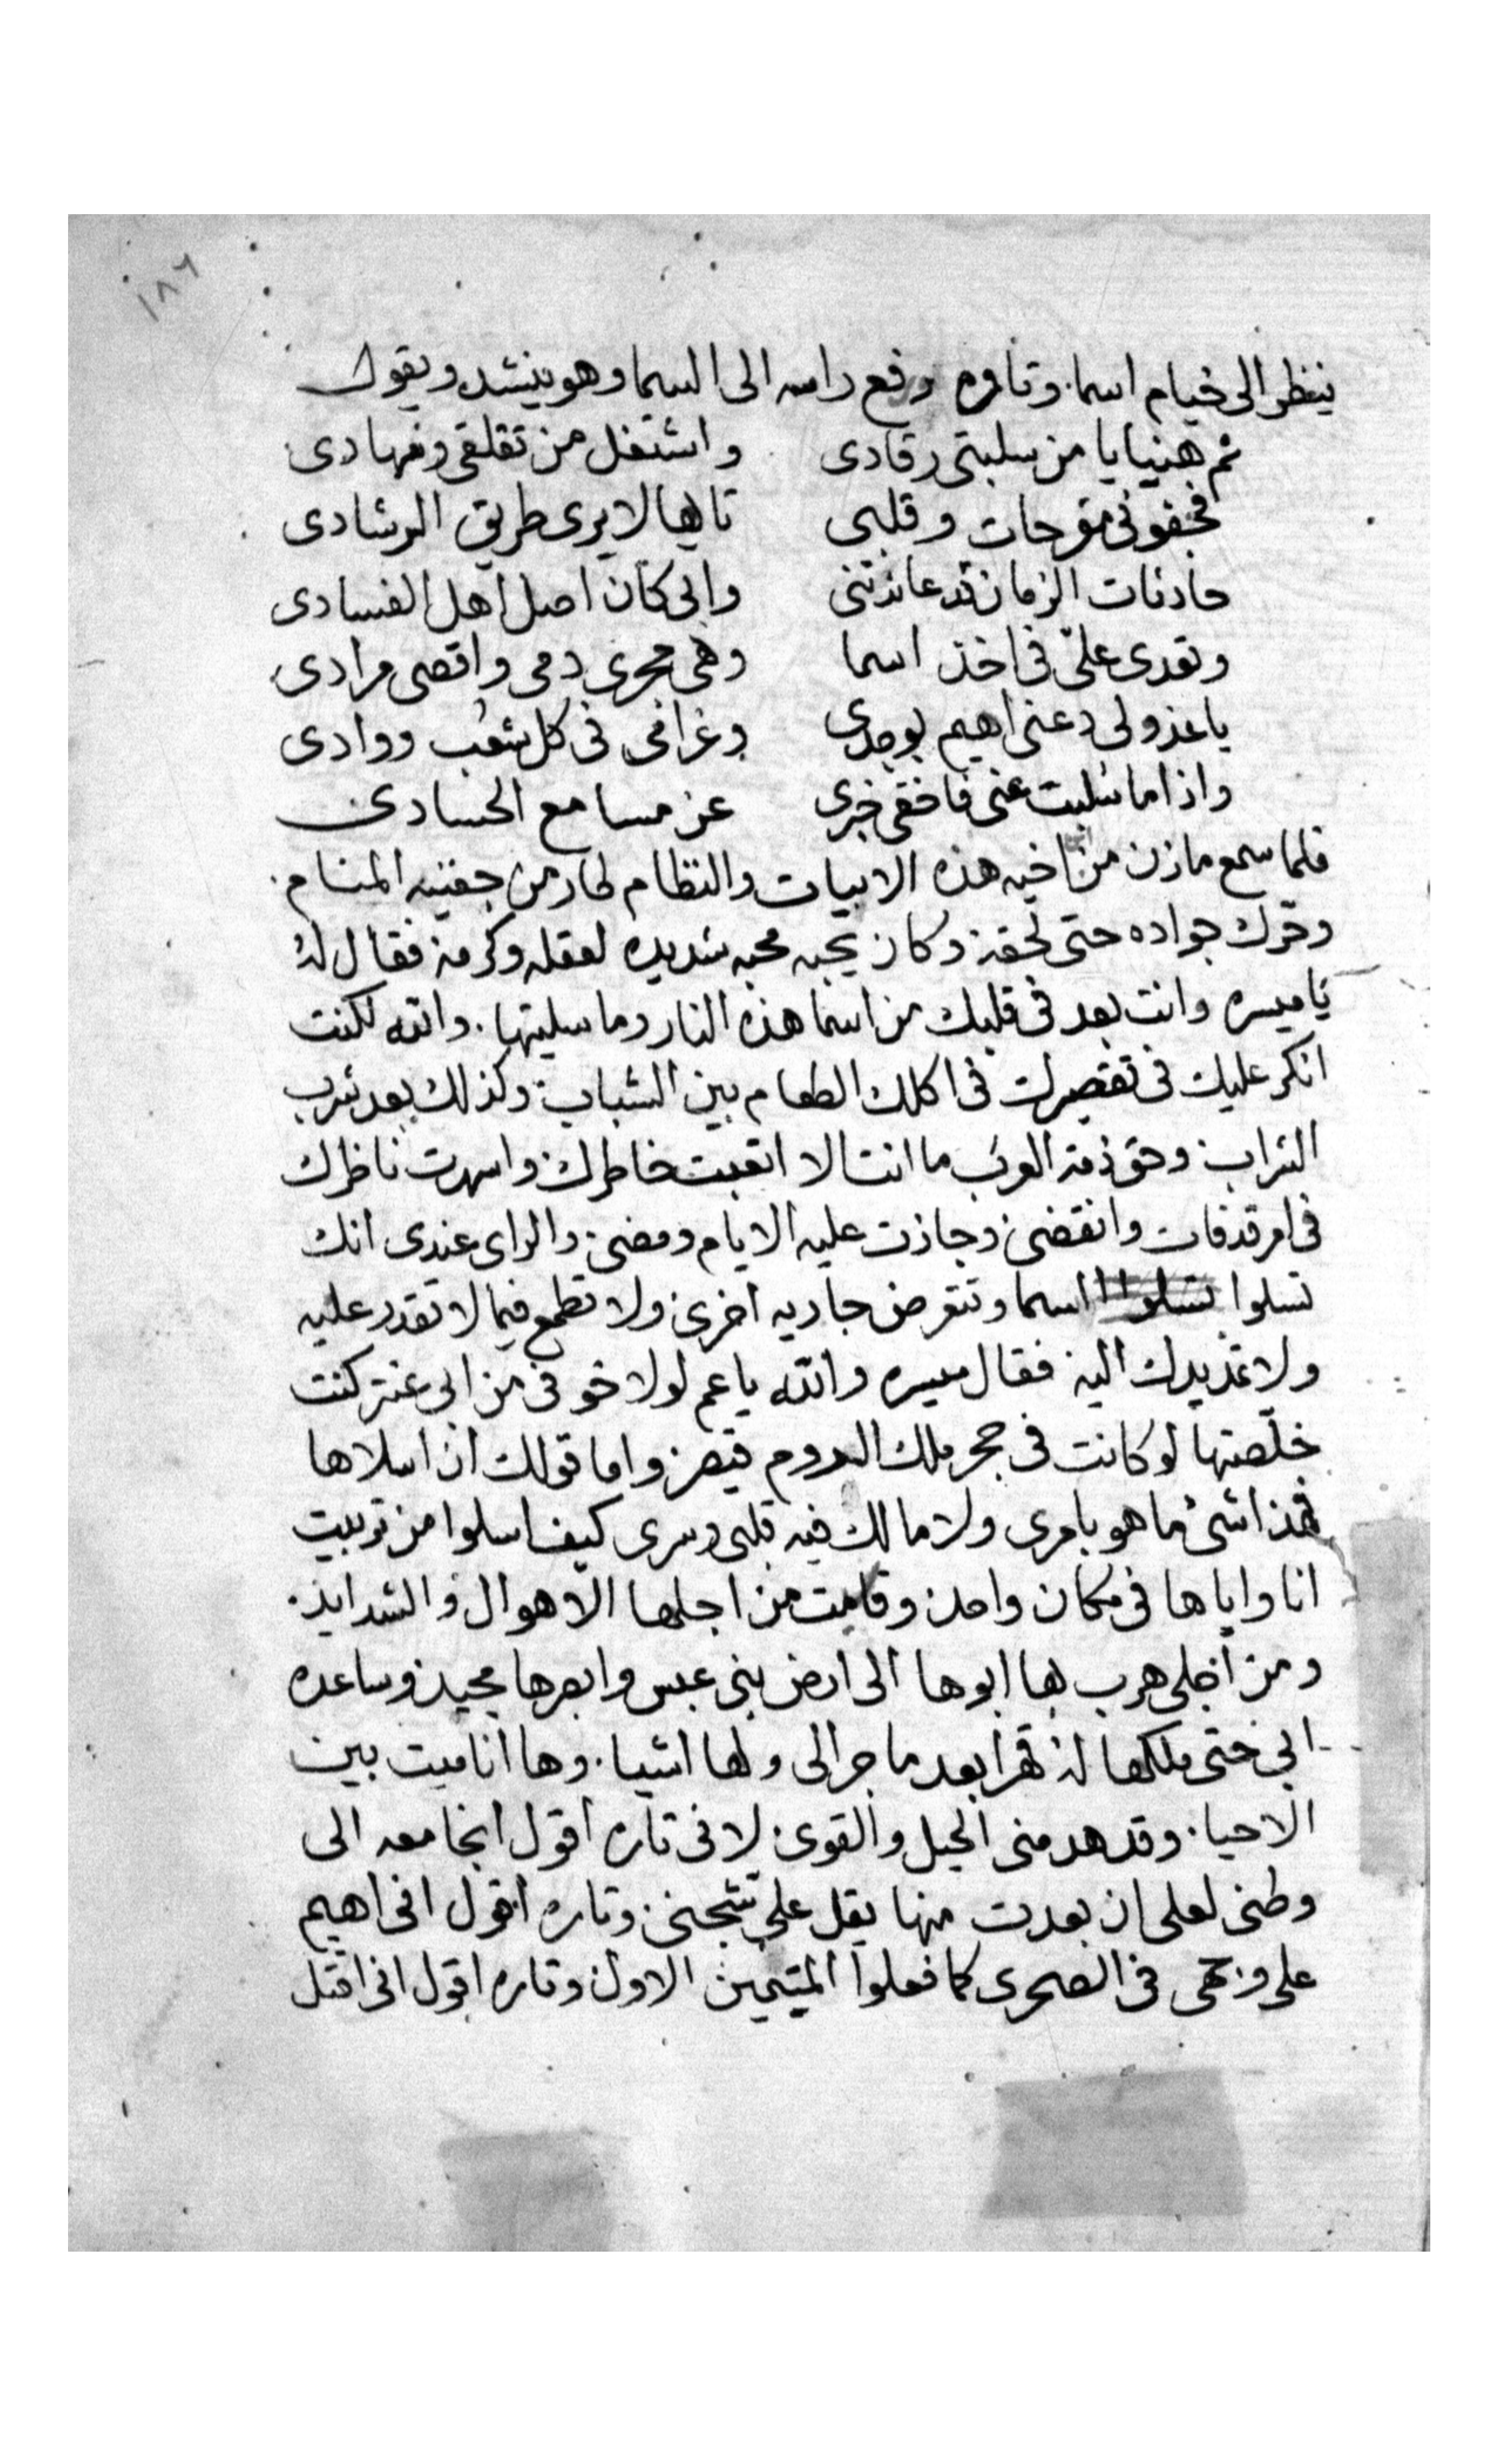 ١٨٦
ينظر الى خيام اسما. وتاره رفع راسه الى السما وهو ينشد ويقول
نم هنيا يا من سلبتى رقادى واشتغل من تقلقى وسهادى
فجفونى مقرحات وقلبى تايها لا يرى طريق الرشادى
حادثات الزمان قد عاندتنى وابى كان اصل اهل الفسادى
وتعدى علىّ فى اخذ اسما وهى مجرى دمى واقصى مرادى
يا عذولى دعنى اهيم بوجدى وغرامى فى كل شعب ووادى
واذا ما سُليت عنى فاخفى خبرى عن مسامع الحسادى
فلما سمع مازن من اخيه هذه الابيات والنظام لحار من جفنيه المنام.
وحرك جواده حتى لحقه وكان يحبه محبه شديده لعقله وكرمه فقال لهُ
يا ميسره وانت بعد فى قلبك من اسما هذه النار وما سليتها. والله لكنت
انكر عليك فى تقصيرك فى اكلك الطعام بين الشباب وكذلك بعد شرب
الشراب وحق ذمة العرب ما انت الا اتعبت خاطرك واسهرت ناظرك
فى امر قد فات وانقضى وجازت عليه الايام ومضى والراى عندى انك
تسلوا اسما وتتعرض جاريه اخرى ولا تطمع فيما لا تقدر عليه
ولا تمد يدك اليه فقال ميسره والله يا عم لولا خوفى من ابى عنتر كنت
خلّصتها لو كانت فى حجر ملك الروم قيصر واما قولك ان اسلاها
فهذا شئ ما هو بامرى ولا مالك فيه قلبى وسرى كيف اسلوا من تربيت
انا واياها فى مكان واحد وقاسيت من اجلها الاهوال والشدايد.
ومن اجلى هرب بها ابوها الى ارض بنى عبس وابصرها مجيد وساعده
ابى حتى ملكها له قهرا بعد ما جرا لى ولها اشيا. وها انا ميت بين
الاحيا. وقد هد منى الحيل والقوى لانى تاره اقول انجا معه الى
وطنى لعلى ان بعدت منها يقل على شجنى وتاره اقول انى اهيم
على وجهى فى الصحرى كما فعلوا المتيمين الاول وتاره اقول انى اقتل